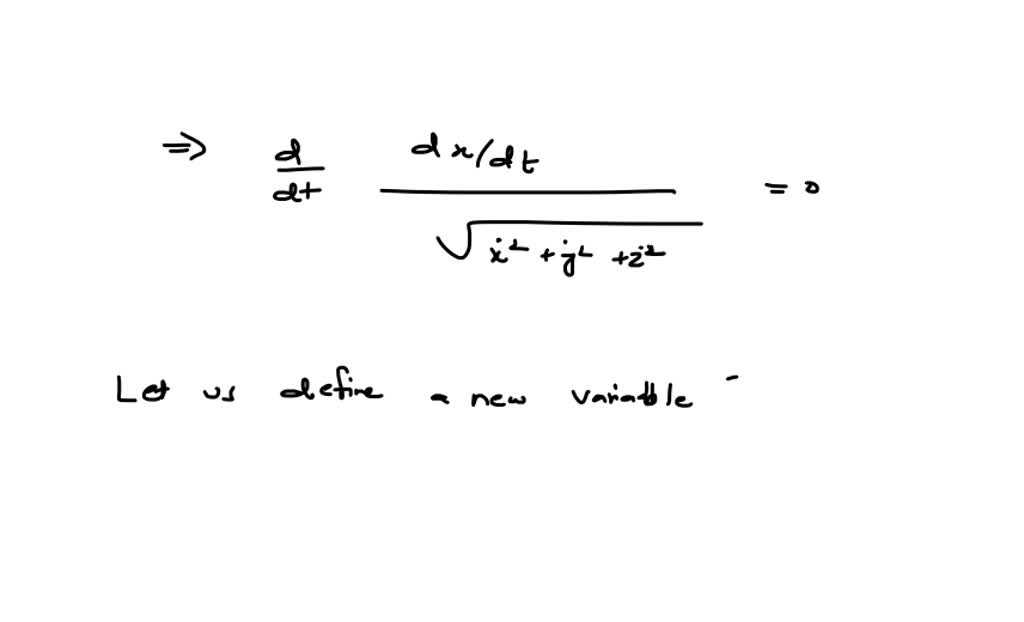 ⇒ d/dt (dx/dt) / √(ẋ² + ẏ² + ż²) = 0
Let us define a new variable